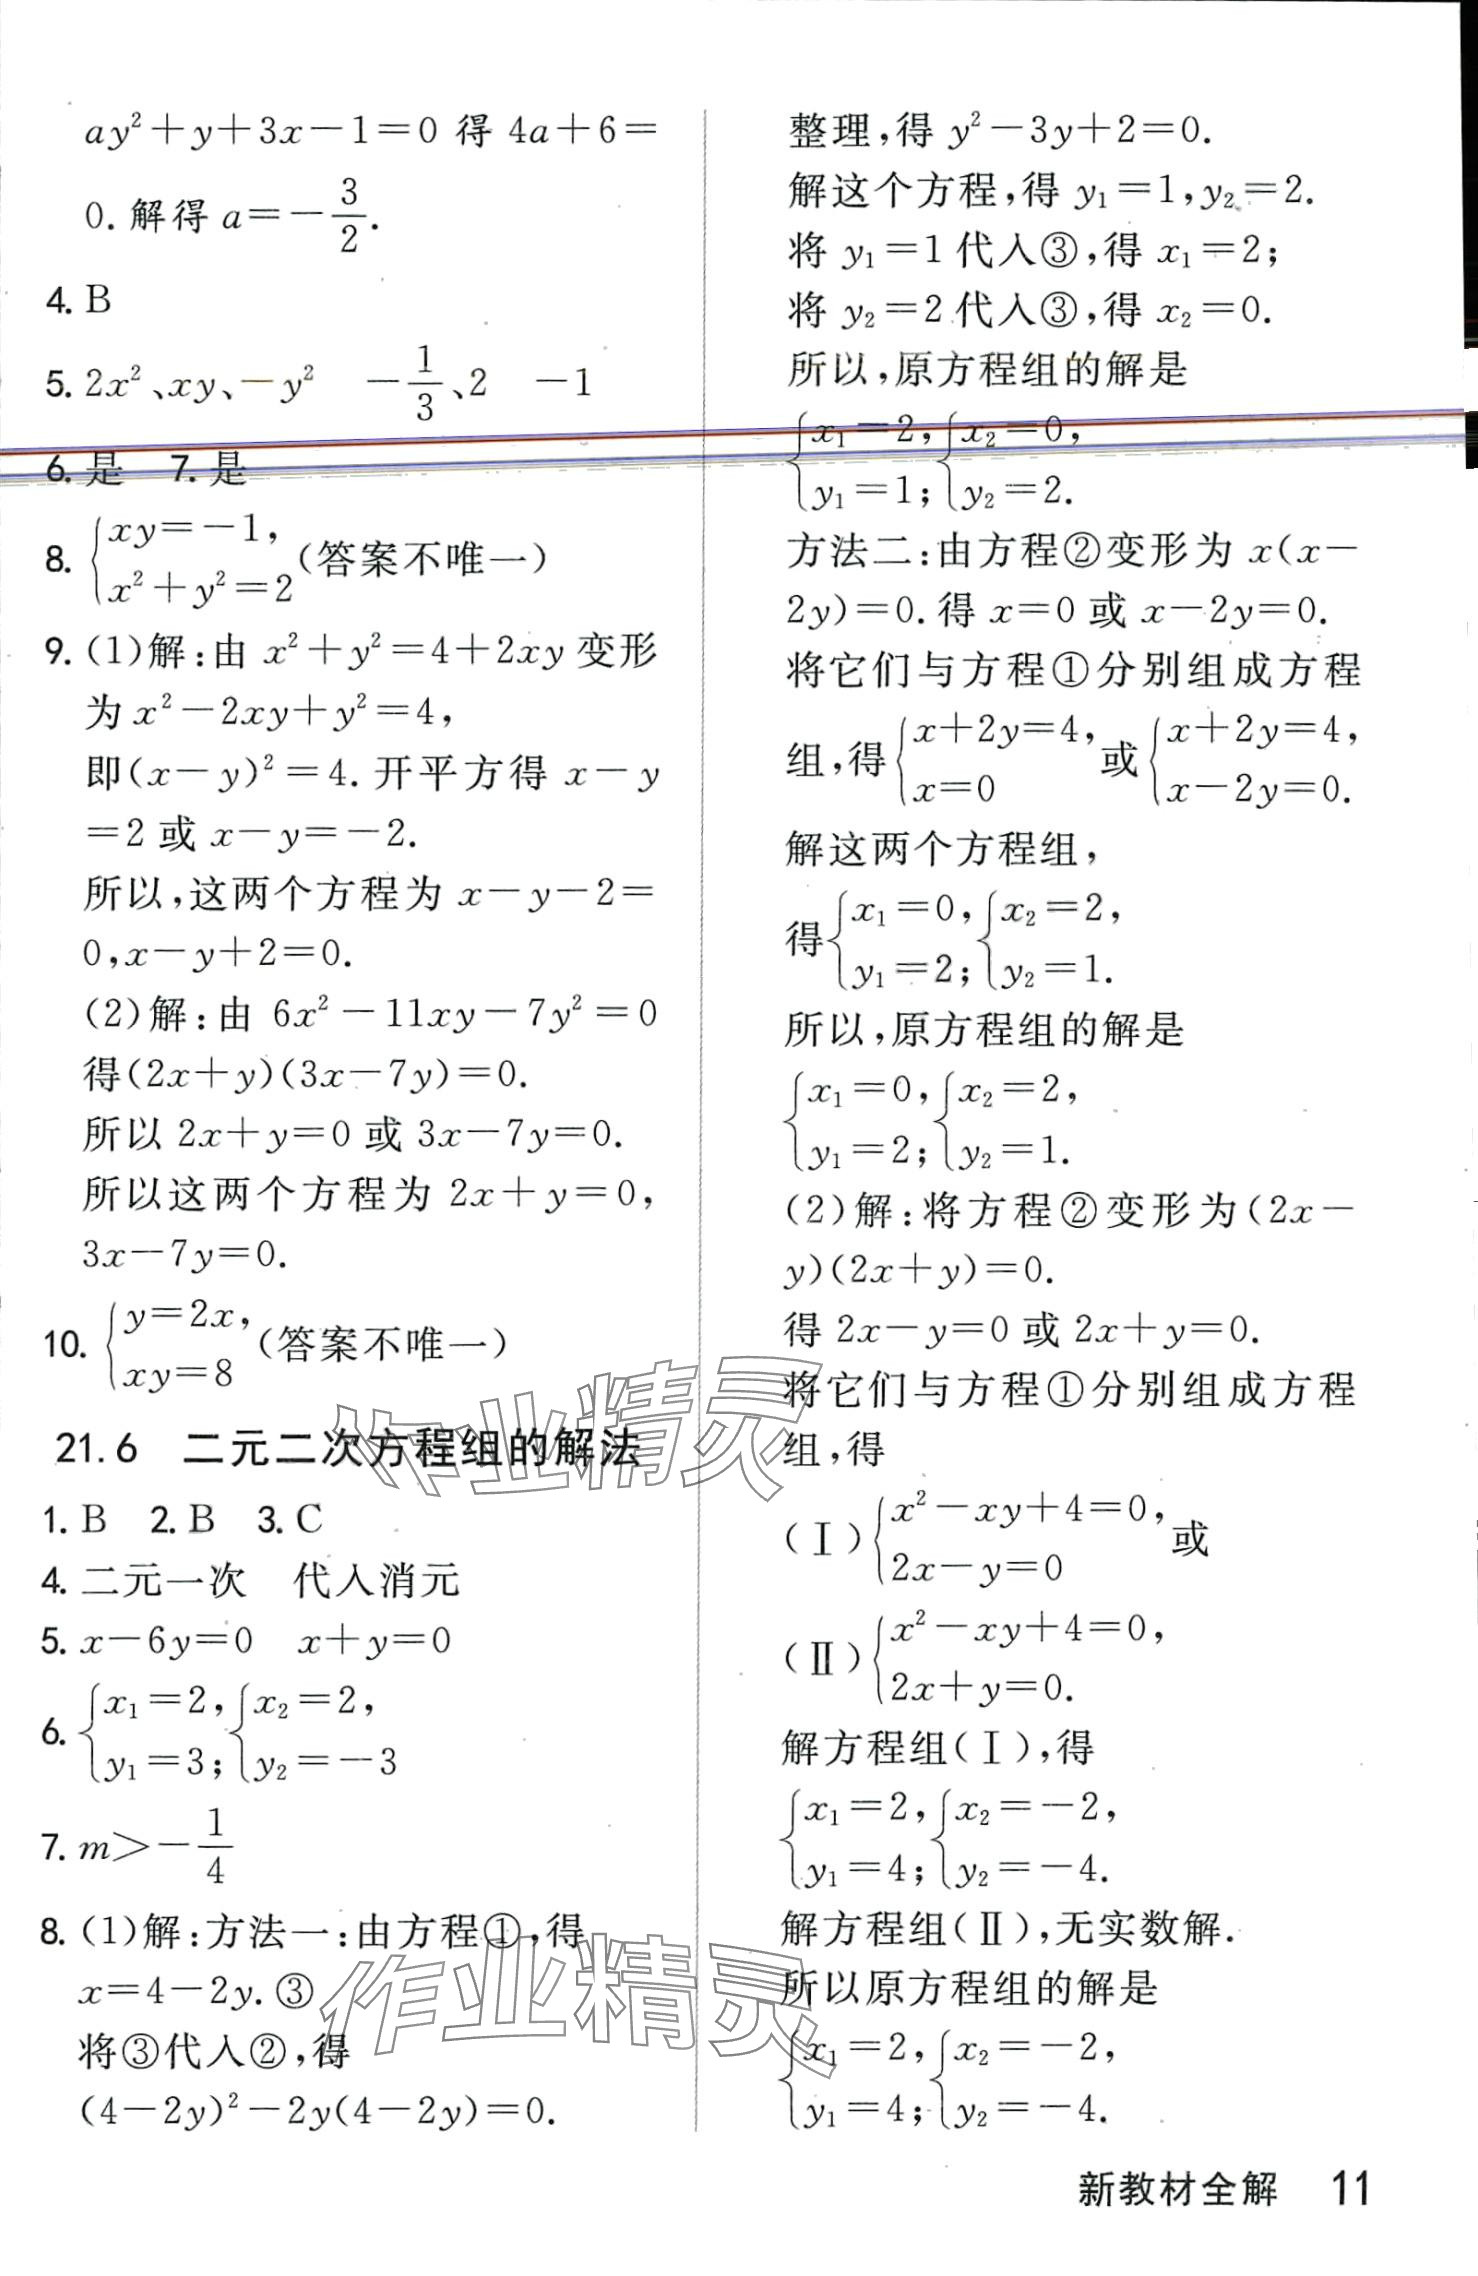 ay²+y+3x-1=0 得 4a+6=
0. 解得 a=-3/2.
4. B
5. 2x²、xy、-y²  -1/3、2  -1
6. 是  7. 是
8. {xy=-1, x²+y²=2 (答案不唯一)
9. (1)解:由 x²+y²=4+2xy 变形
为 x²-2xy+y²=4,
即(x-y)²=4. 开平方得 x-y
=2 或 x-y=-2.
所以,这两个方程为 x-y-2=
0,x-y+2=0.
(2)解:由 6x²-11xy-7y²=0
得(2x+y)(3x-7y)=0.
所以 2x+y=0 或 3x-7y=0.
所以这两个方程为 2x+y=0,
3x-7y=0.
10. {y=2x, xy=8 (答案不唯一)
21.6 二元二次方程组的解法
1. B  2. B  3. C
4. 二元一次  代入消元
5. x-6y=0  x+y=0
6. {x₁=2, y₁=3; {x₂=2, y₂=-3
7. m>-1/4
8. (1)解:方法一:由方程①,得
x=4-2y. ③
将③代入②,得
(4-2y)²-2y(4-2y)=0.
整理,得 y²-3y+2=0.
解这个方程,得 y₁=1,y₂=2.
将 y₁=1 代入③,得 x₁=2;
将 y₂=2 代入③,得 x₂=0.
所以,原方程组的解是
{x₁=2, y₁=1; {x₂=0, y₂=2.
方法二:由方程②变形为 x(x-
2y)=0. 得 x=0 或 x-2y=0.
将它们与方程①分别组成方程
组,得{x+2y=4, x=0 或{x+2y=4, x-2y=0.
解这两个方程组,
得{x₁=0, y₁=2; {x₂=2, y₂=1.
所以,原方程组的解是
{x₁=0, y₁=2; {x₂=2, y₂=1.
(2)解:将方程②变形为(2x-
y)(2x+y)=0.
得 2x-y=0 或 2x+y=0.
将它们与方程①分别组成方程
组,得
(Ⅰ){x²-xy+4=0, 2x-y=0 或
(Ⅱ){x²-xy+4=0, 2x+y=0.
解方程组(Ⅰ),得
{x₁=2, y₁=4; {x₂=-2, y₂=-4.
解方程组(Ⅱ),无实数解.
所以原方程组的解是
{x₁=2, y₁=4; {x₂=-2, y₂=-4.
新教材全解 11
作业精灵
作业精灵